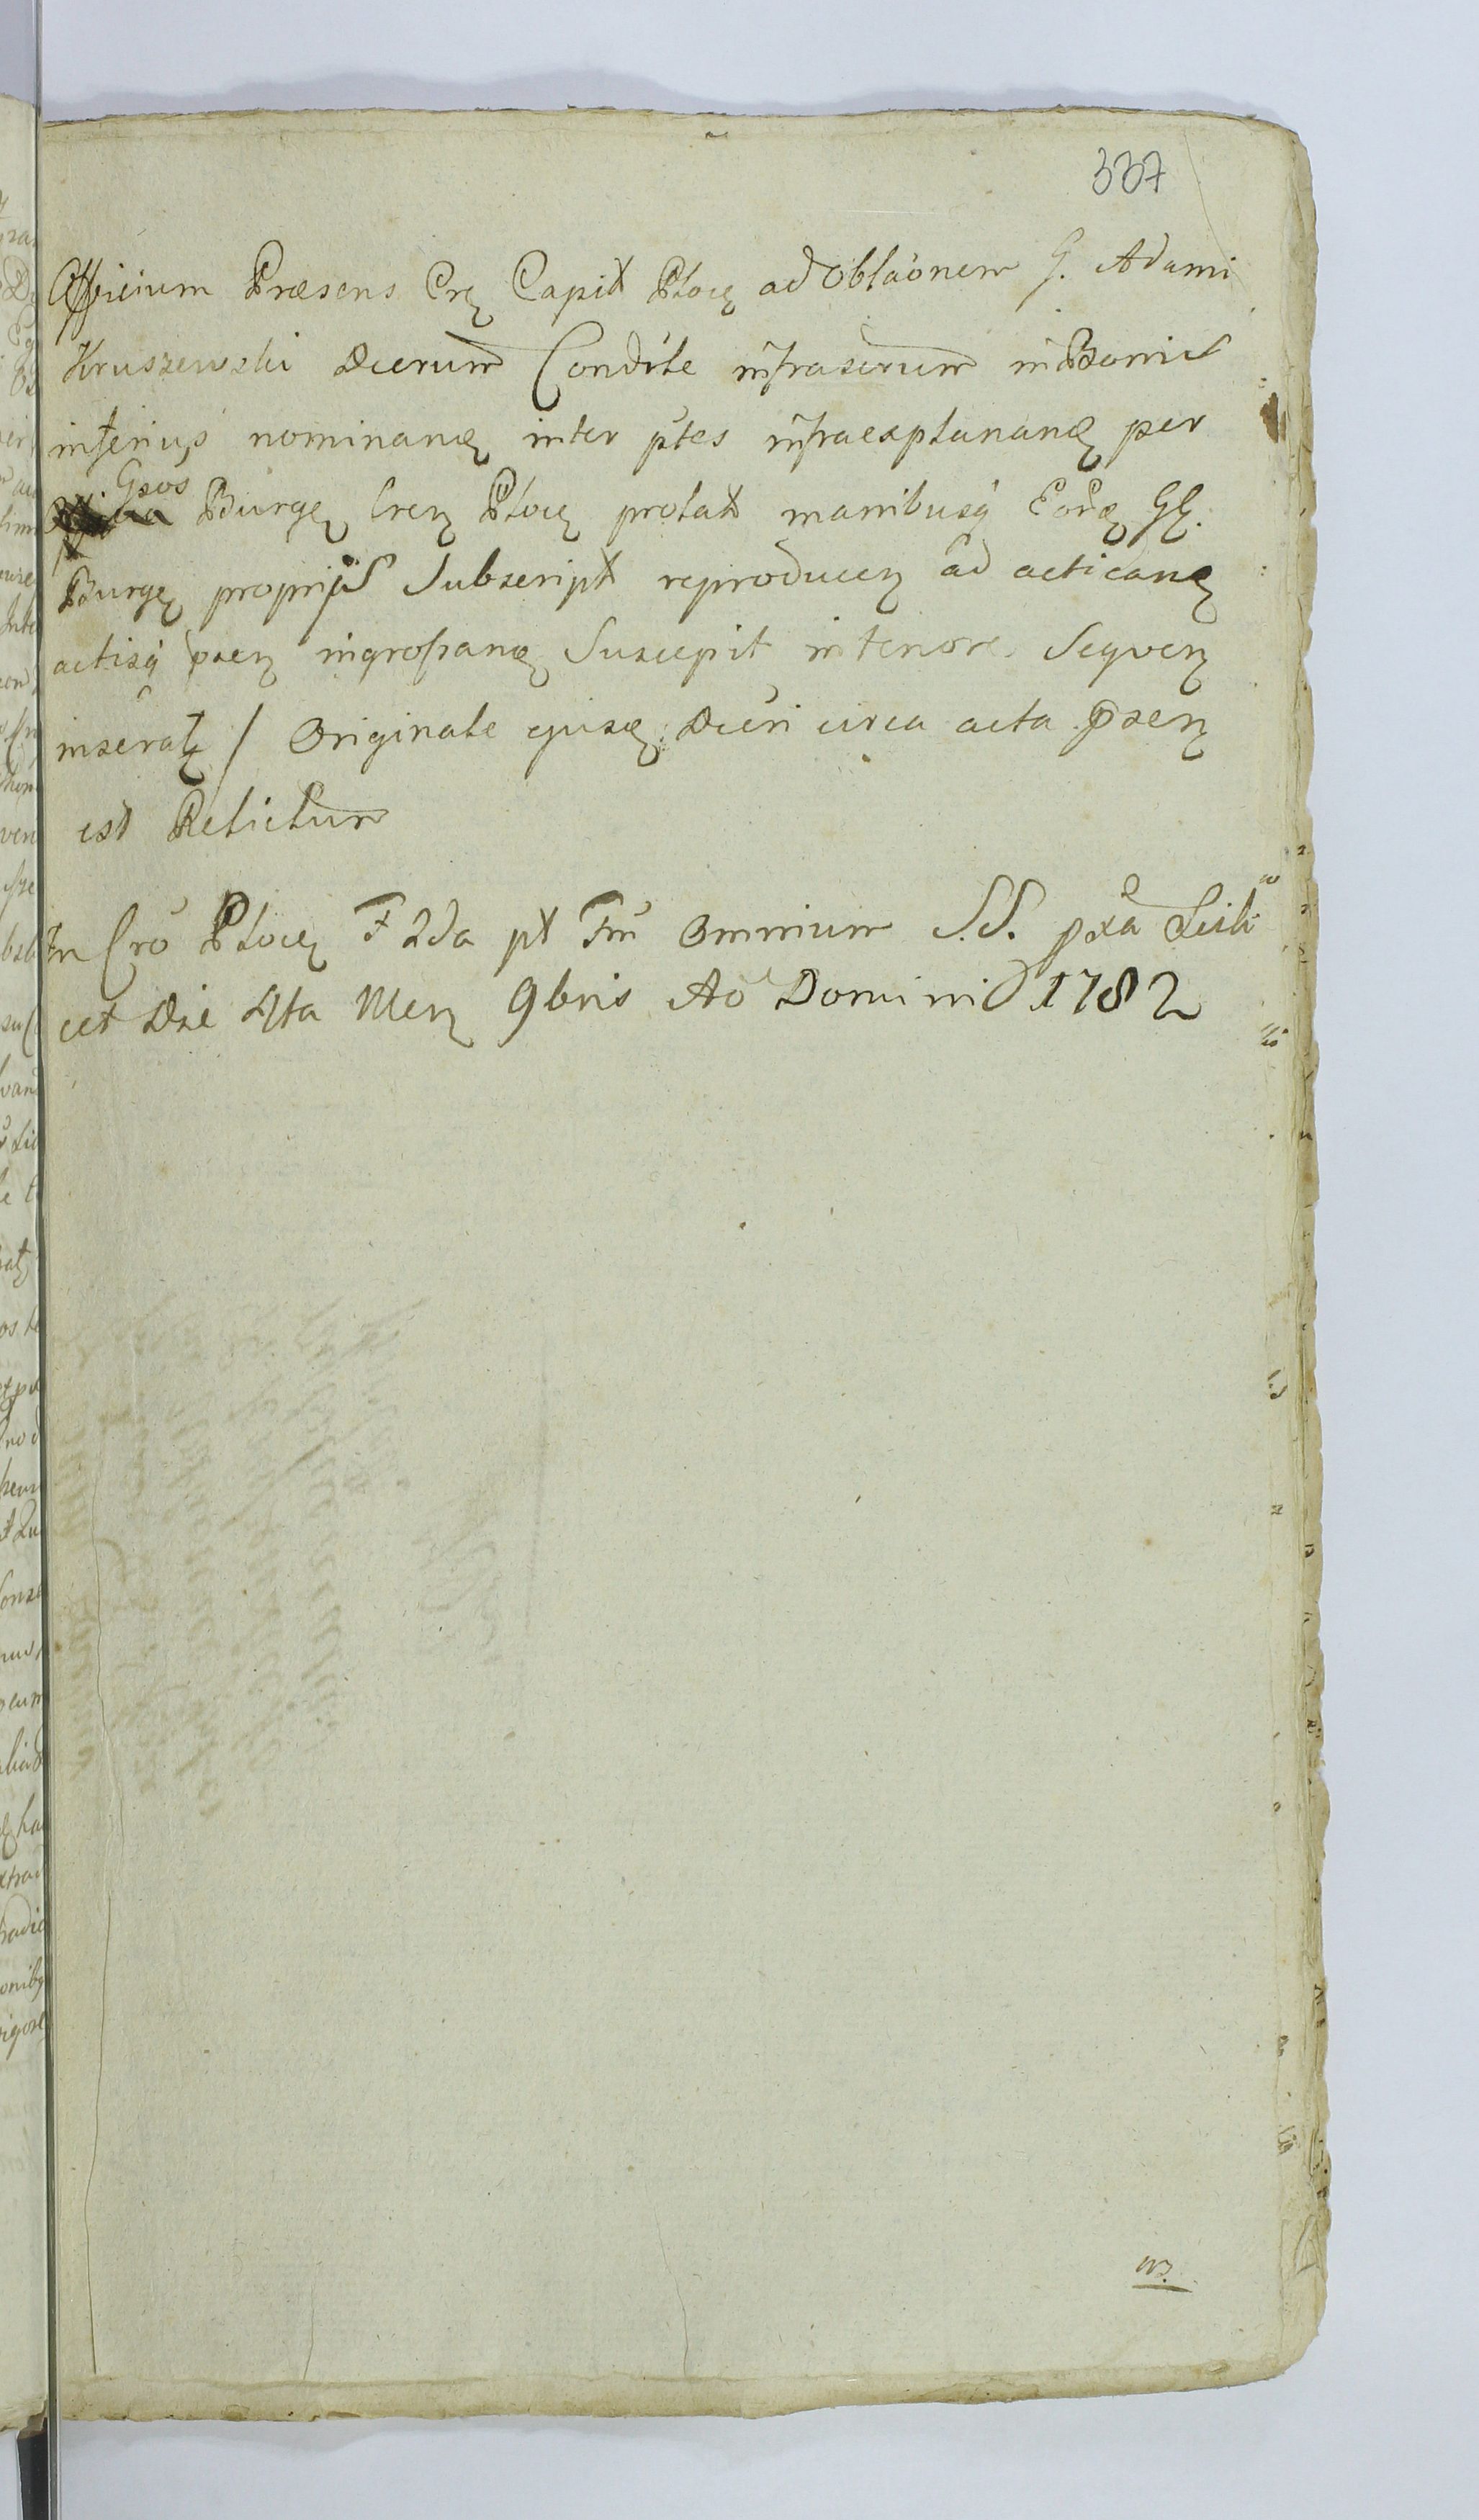 337
Officium Præsens Cręz Capitł Płocęz ad Obláonem G. Adami
Kruszewski Dcerum Condite infrascrum in Bonis
inferius nominanę inter ptes infraexplananę per
Gsos Burgęz Crenz Płocęz prolatł manibusq̃ Eordę GG.
Burgęz proprijs Subscriptł reproducenz ad acticanę
actisq̃ psenz ingrossanę Suscepit in tenore Sequenz
inserałz / Originale ejusdę Dcri circa acta psenz
est Relictum
In Crõ Płocęz F 2da pł Fm Omnium S.S. pxa
cet Die 4ta Menz 9bris Aõ Domini 1782